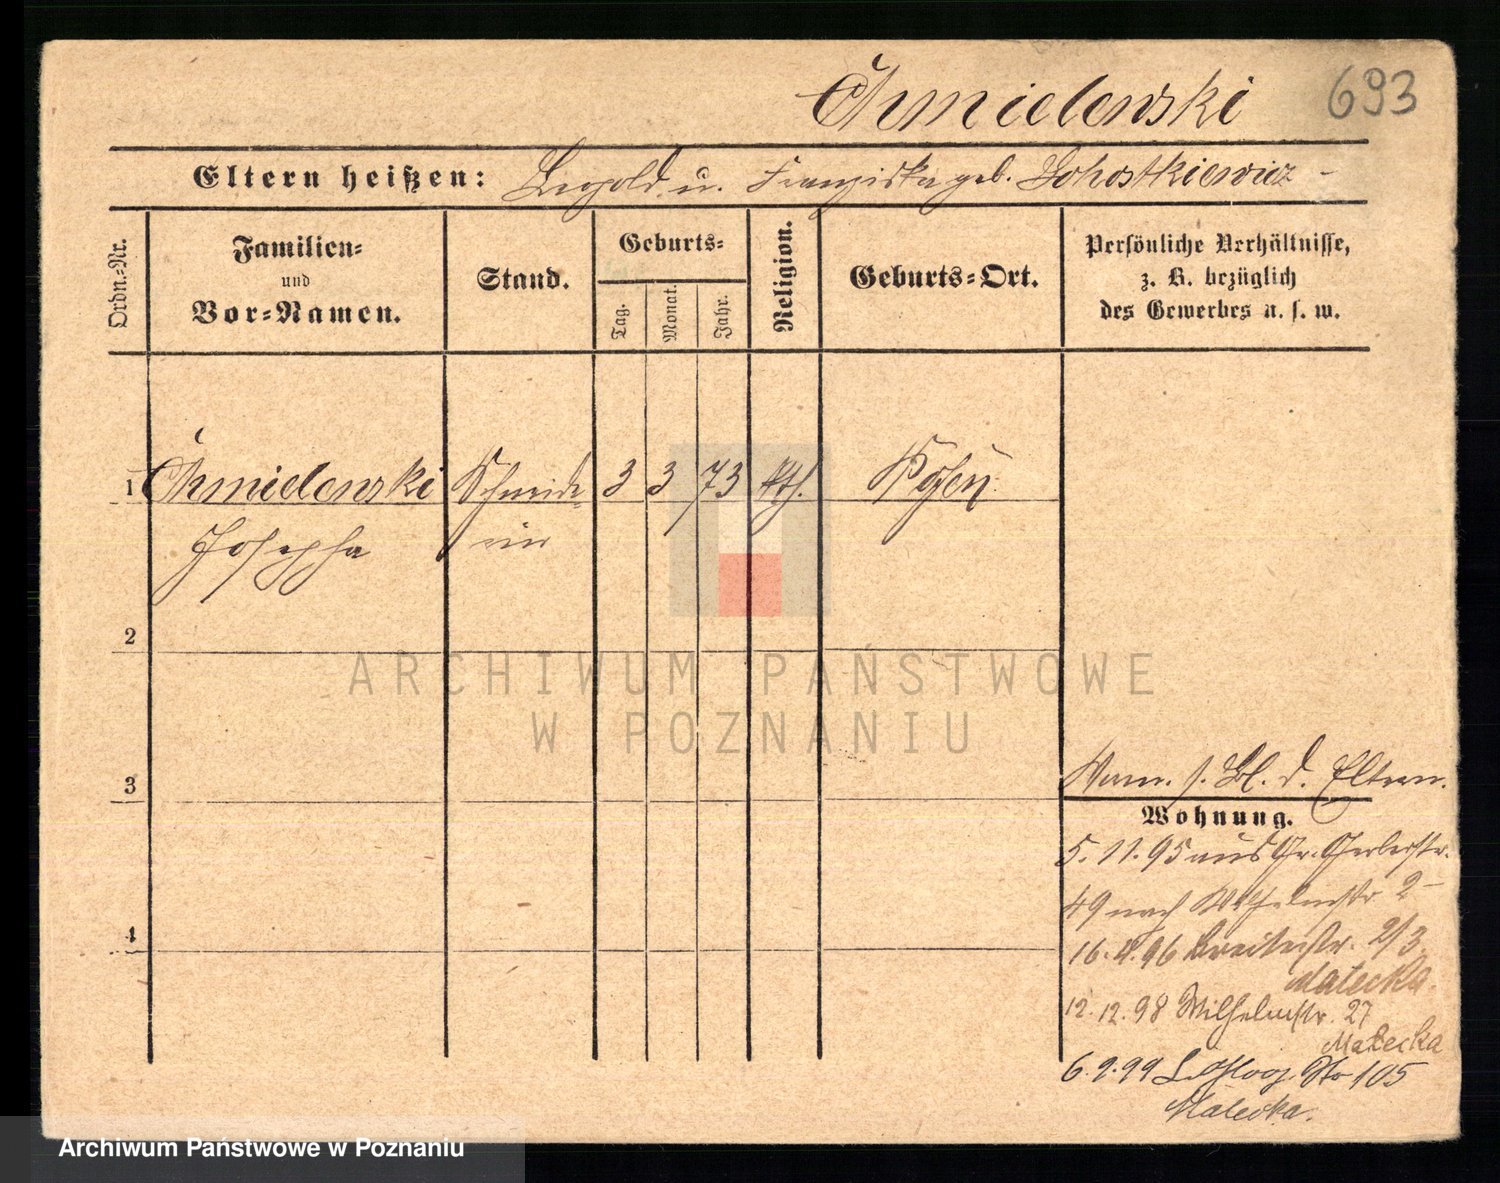 Chmielewski 693
Eltern heißen: Leopold u. Franziska geb.
Ordn.-Nr.
Familien-
und
Vor-Namen.
Stand.
Geburts-
Tag.
Monat.
Jahr.
Religion.
Geburts-Ort.
Persönliche Verhältnisse,
z. B. bezüglich
des Gewerbes u. s. w.
1 Chmielewski Schneide- 3 3 73 kth. Posen
Josepha rin
2
ARCHIWUM PAŃSTWOWE
W POZNANIU
3
Verm. s. Bl. d. Eltern.
Wohnung.
5.11.95 aus Gr. Gerberstr.
49 nach Wilhelmstr 2
4
16.4.96 Breitestr. 2/3
Malecka.
12.12.98 Wilhelmstr. 27
Malecka
6.2.99 Glog. Str 105
Malecka.
Archiwum Państwowe w Poznaniu